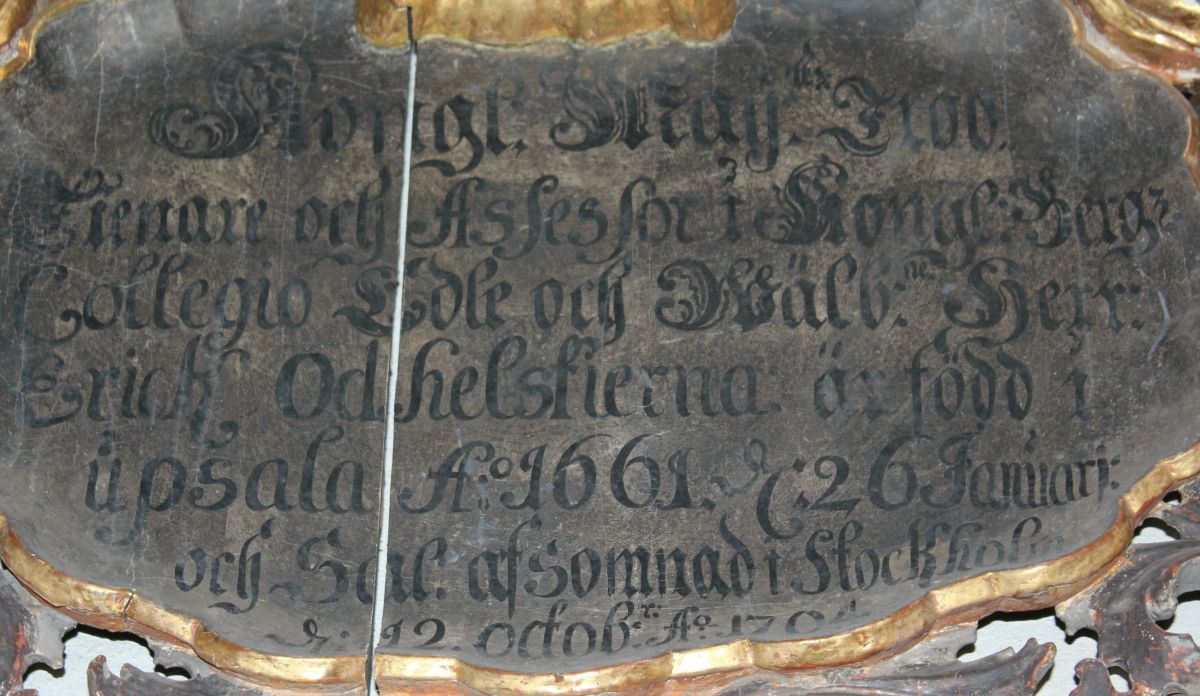 Kongl. Maÿ:tz Troo.
Tienare och Assessor i Kongl: Berg:
Collegio Edle och Wälb:ne Herr:
Erick Odhelstierna: är född i
upsala A:o 1661. d: 26 Januari:
och Sal. afsomnad i Stockholm
d: 12. octob:r: A:o